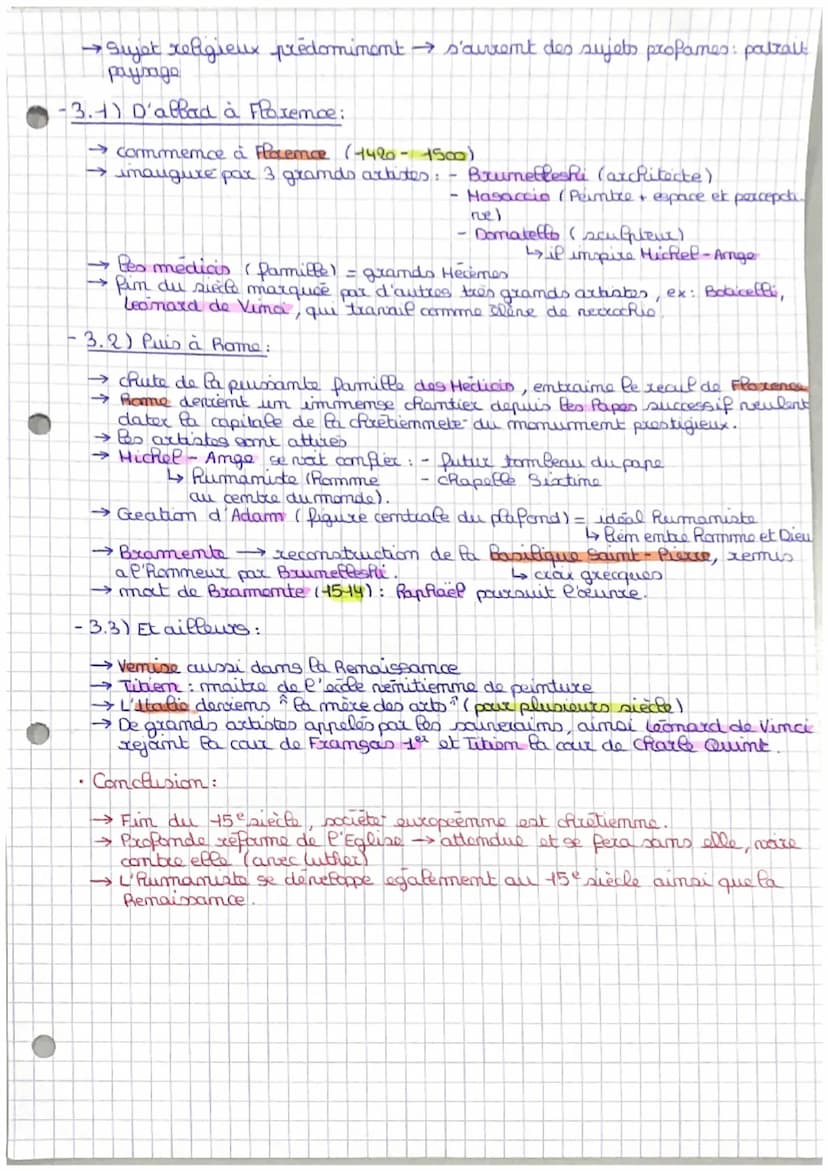 → Sujet religieux prédominent → s'ouvrent des sujets profanes : portrait
paysage
- 3.1) D'abord à Florence :
→ commence à Florence (1420 - 1500)
→ inauguré par 3 grands artistes : - Brunelleshi (architecte)
- Masaccio (Peintre + espace et perspecti
ve)
- Donatello (sculpteur)
↳ il inspire Michel-Ange
→ les médicis (famille) = grands Mécènes
→ fin du siècle marquée par d'autres très grands artistes, ex : Boticelli,
Léonard de Vinci, qui travail comme élève de
- 3.2) Puis à Rome :
→ chute de la puissante famille des Médicis, entraine le recul de Florence
→ Rome devient un immense chantier depuis les Papes successif veulent
doter la capitale de la chrétienneté du monument prestigieux.
→ les artistes sont attirés
→ Michel-Ange se voit confier : - futur tombeau du pape
↳ Humaniste (homme - chapelle Sixtine
au centre du monde).
→ Création d'Adam (figure centrale du plafond) = idéal humaniste
↳ lien entre homme et Dieu
→ Bramente → reconstruction de la Basilique Saint-Pierre, remis
a l'honneur par Brunelleshi. ↳ croix grecques
→ mort de Bramente (1514) : Raphaël poursuit l'oeuvre.
- 3.3) Et ailleurs :
→ Venise aussi dans la Renaissance
→ Titien : maitre de l'école vénitienne de peinture
→ L'Italie deviens "la mère des arts" (pour plusieurs siècle)
→ De grands artistes appelés par les souverains, ainsi Léonard de Vinci
rejoint la cour de François 1er et Titien la cour de Charle Quint.
• Conclusion :
→ Fin du 15e siècle, société européenne est chrétienne.
→ Profonde réforme de l'Eglise → attendue et se fera sans elle, voire
contre elle (avec Luther)
→ L'humaniste se développe également au 15e siècle ainsi que la
Renaissance.